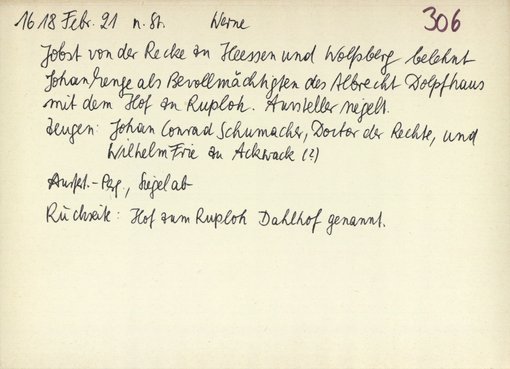 1618 Febr. 21 n. St. Werne 306
Jobst von der Recke zu Heessen und Wolfsberg belehnt
Johan Zenge als Bevollmächtigten des Albrecht Dolphaus
mit dem Hof zu Ruploh. Aussteller siegelt.
Zeugen: Johan Conrad Schumacher, Doctor der Rechte, und
Wilhelm Frie zu Ackwack (?)
Ausfert.-Perg., Siegel ab
Rückseite: Hof zum Ruploh Dahlhof genannt.